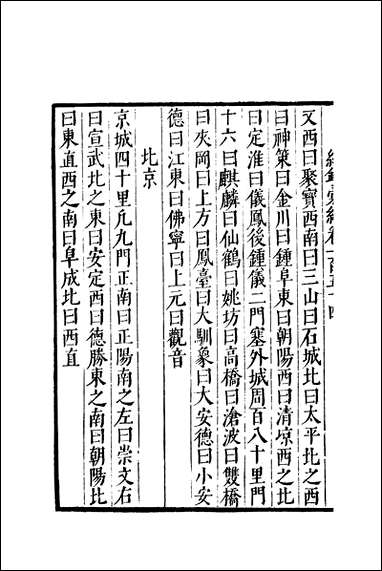 又西曰聚寶西南曰三山曰石城北曰太平北之西
曰神策曰金川曰鍾阜東曰朝陽西曰清凉西之北
曰定淮曰儀鳳後鍾儀二門塞外城周百八十里門
十六曰麒麟曰仙鶴曰姚坊曰高橋曰滄波曰雙橋
曰夾岡曰上方曰鳳臺曰大馴象曰大安德曰小安
德曰江東曰佛寧曰上元曰觀音
北京
京城四十里凢九門正南曰正陽南之左曰崇文右
曰宣武北之東曰安定西曰德勝東之南曰朝陽北
曰東直西之南曰阜成北曰西直